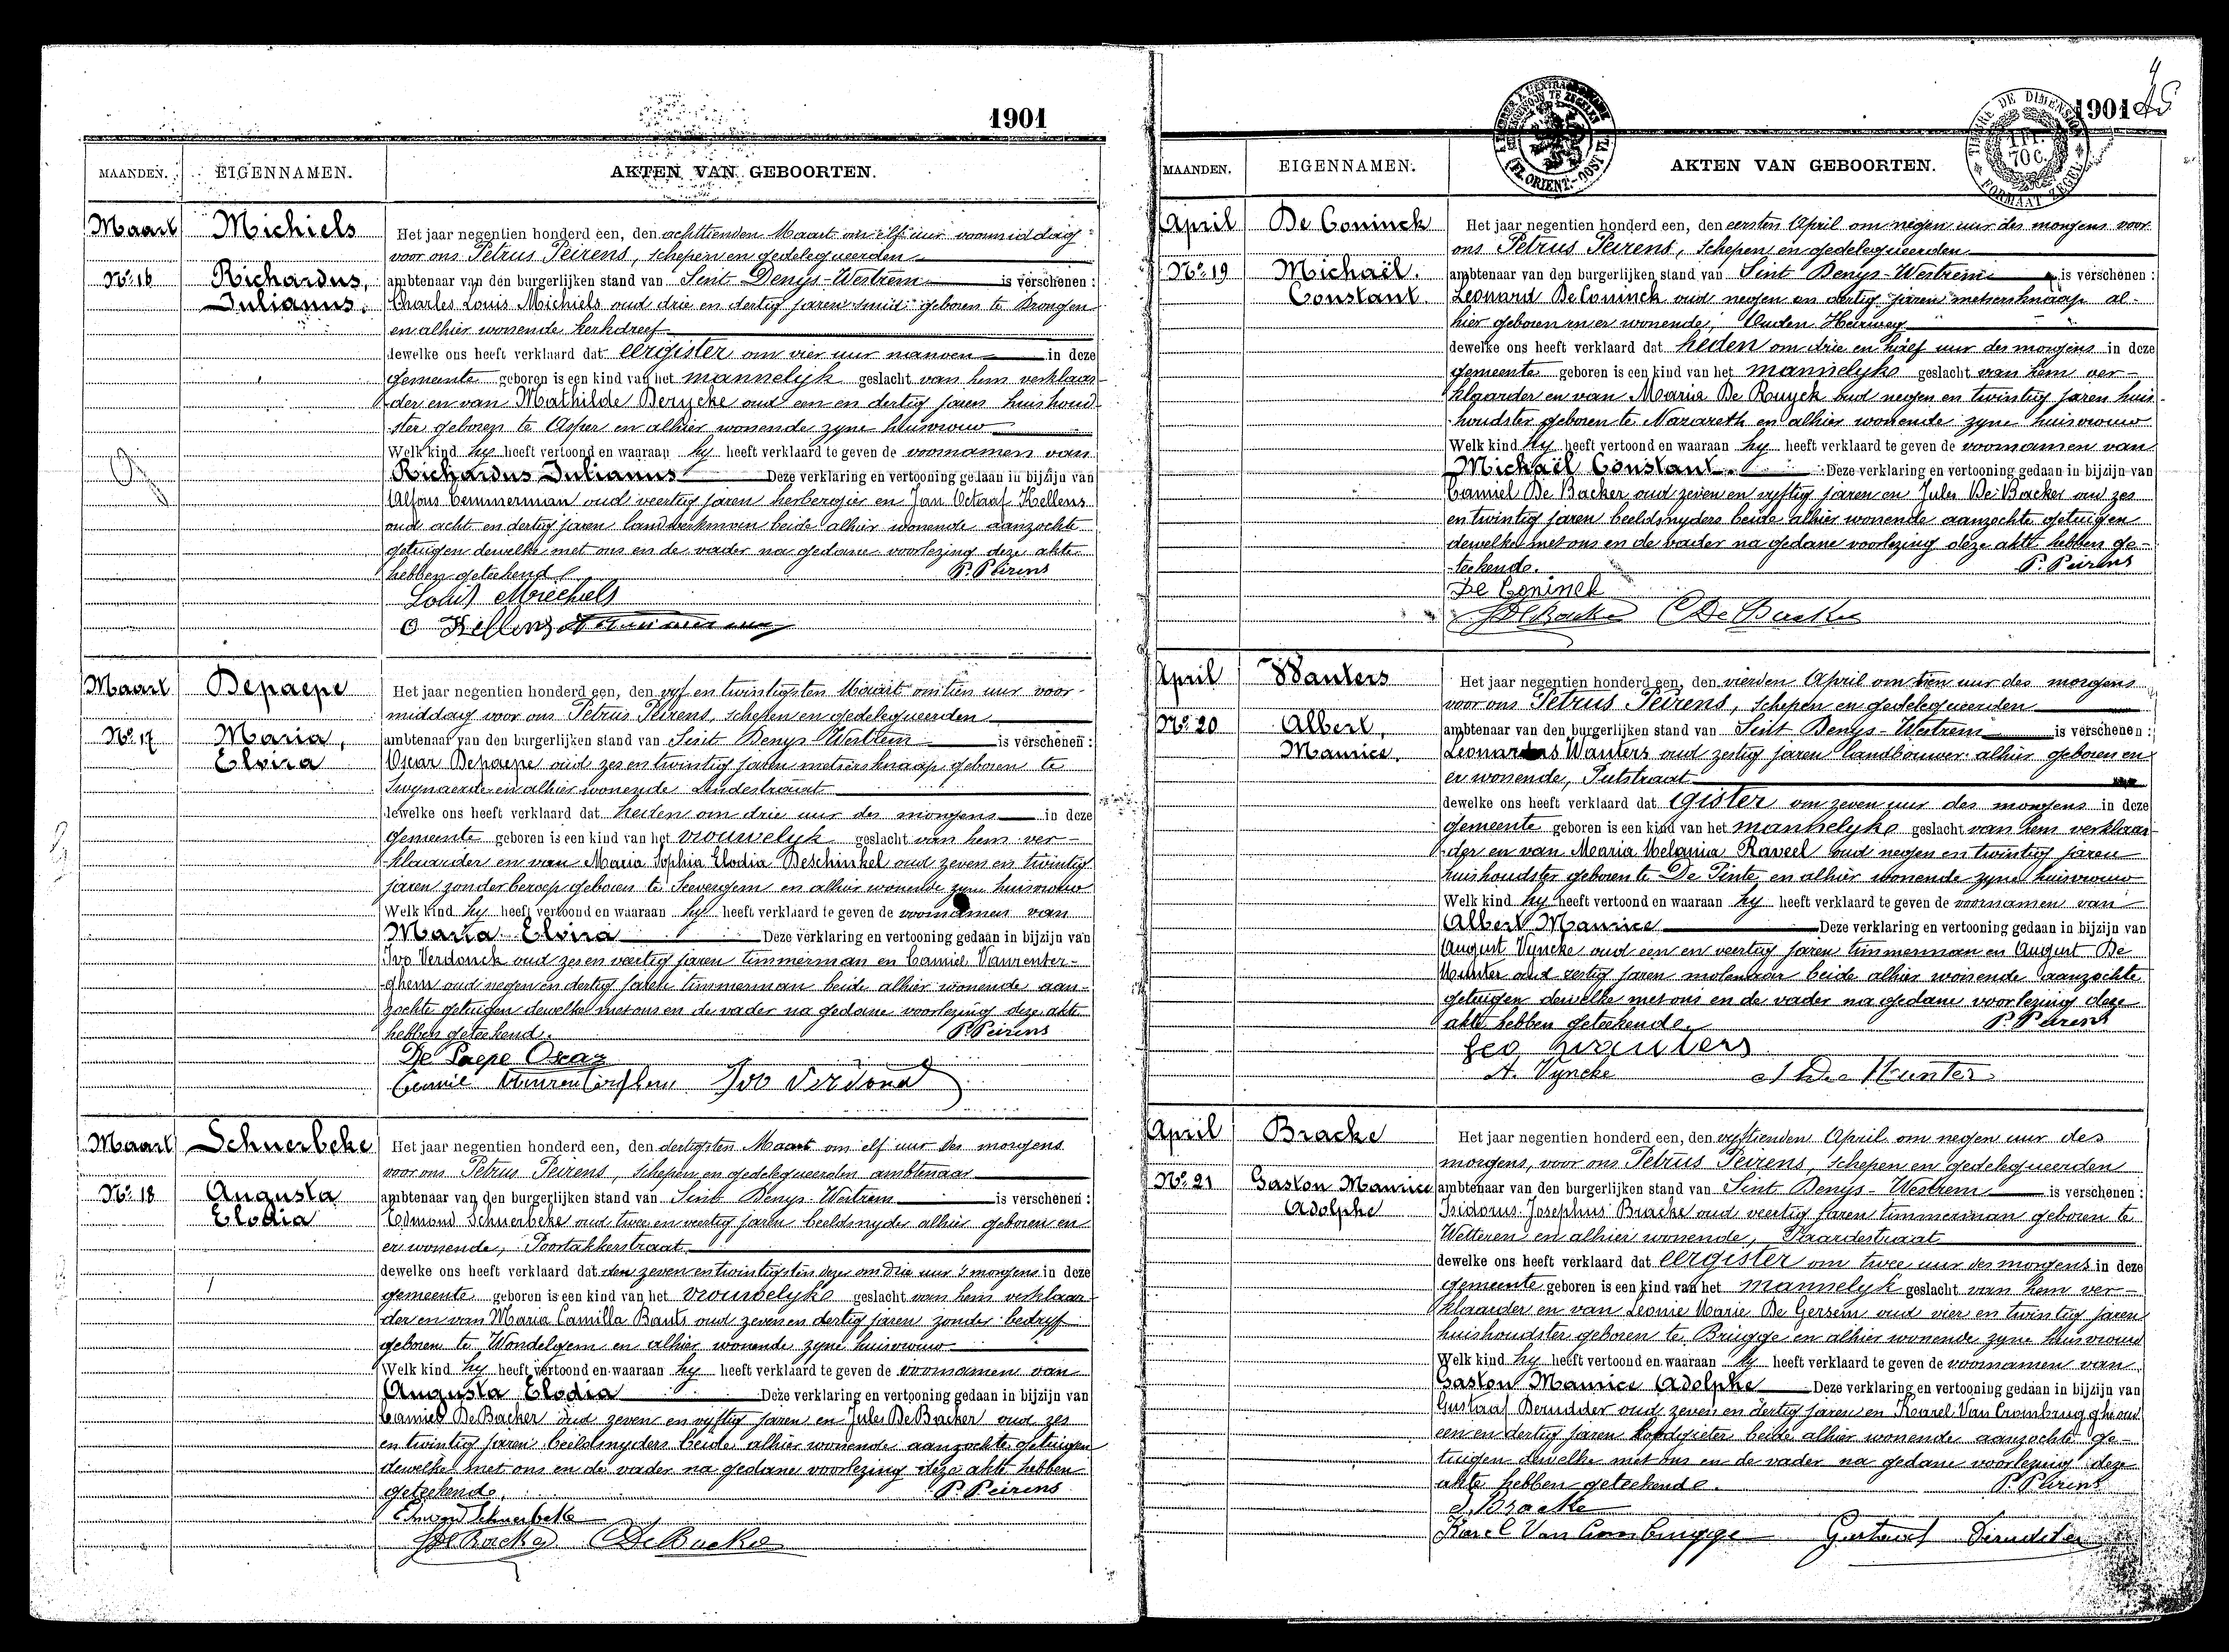 1901
MAANDEN. EIGENNAMEN. AKTEN VAN GEBOORTEN.
Maart Michiels Het jaar negentien honderd een, den achttienden Maart om elf uur voormiddag
voor ons Petrus Peirens, schepen en gedelegueerden
No. 16 Richardus, ambtenaar van den burgerlijken stand van Sint Denys-Westrem is verschenen:
Julianus. Charles Louis Michiels oud drie en dertig jaren smid geboren te Drongen
en alhier wonende kerkdreef
dewelke ons heeft verklaard dat eergister om vier uur nanoen in deze
gemeente geboren is een kind van het mannelijk geslacht van hem verklaar-
der en van Mathilde Derycke oud een en dertig jaren huishoud-
ster geboren te Asper en alhier wonende zyne huisvrouw
Welk kind hy heeft vertoond en waaraan hy heeft verklaard te geven de voornamen van
Richardus Julianus Deze verklaring en vertooning gedaan in bijzijn van
Alfons Cemmerman oud veertig jaren herbergier en Jan Octaaf Hellens
oud acht en dertig jaren landwerkman beide alhier wonende aanzochte
getuigen dewelke met ons en de vader na gedane voorlezing deze akte
hebben geteekend P. Peirens
Louis Miechiels
O Hellens
Maart Depaepe Het jaar negentien honderd een, den vyf en twintigsten Maart om tien uur voor-
middag voor ons Petrus Peirens, schepen en gedelegueerden
No. 17 Maria, ambtenaar van den burgerlijken stand van Sint Denys Westrem is verschenen:
Elvira Oscar Depaepe oud zes en twintig jaren metsersknaap geboren te
Swynaerde en alhier wonende Lindestraat
dewelke ons heeft verklaard dat heden om drie uur des morgens in deze
gemeente geboren is een kind van het vrouwelyk geslacht van hem ver-
klaarder en van Maria Sophia Elodia Deschinkel oud zeven en twintig
jaren zonder beroep geboren te Seevergem en alhier wonende zyne huisvrouw
Welk kind hy heeft vertoond en waaraan hy heeft verklaard te geven de voornamen van
Maria Elvira Deze verklaring en vertooning gedaan in bijzijn van
Ivo Verdonck oud zes en veertig jaren timmerman en Camiel Vanrenter-
ghem oud negen en dertig jaren timmerman beide alhier wonende aan-
zochte getuigen dewelke met ons en de vader na gedane voorlezing deze akte
hebben geteekend. P. Peirens
De Paepe Oscar
Ivo Verdonck
Maart Schuerbeke Het jaar negentien honderd een, den dertigsten Maart om elf uur des morgens
voor ons Petrus Peirens, schepen en gedelegueerden ambtenaar
No. 18 Augusta ambtenaar van den burgerlijken stand van Sint Denys Westrem is verschenen:
Elodia Edmond Schuerbeke oud twee en veertig jaren beeldsnyder alhier geboren en
er wonende, Poortakkerstraat
dewelke ons heeft verklaard dat den zeven en twintigsten dezer om drie uur 's morgens in deze
gemeente geboren is een kind van het vrouwelyke geslacht van hem verklaar-
der en van Maria Camilla Bauts oud zeven en dertig jaren zonder bedryf
geboren te Wondelgem en alhier wonende zyne huisvrouw
Welk kind hy heeft vertoond en waaraan hy heeft verklaard te geven de voornamen van
Augusta Elodia Deze verklaring en vertooning gedaan in bijzijn van
Camiel De Backer oud zeven en vyftig jaren en Jules De Backer oud zes
en twintig jaren beeldsnyders beide alhier wonende aanzochte getuigen
dewelke met ons en de vader na gedane voorlezing deze akte hebben
geteekende. P. Peirens
Edmond Schuerbeke
JDeBacker CDeBacker
1901
MAANDEN. EIGENNAMEN. AKTEN VAN GEBOORTEN.
April De Coninck Het jaar negentien honderd een, den eersten April om negen uur des morgens voor
ons Petrus Peirens, schepen en gedelegueerden
No. 19 Michaël. ambtenaar van den burgerlijken stand van Sint Denys-Westrem is verschenen:
Constant Leonard De Coninck oud negen en dertig jaren metsersknaap al-
hier geboren en er wonende, Ouden Heirweg
dewelke ons heeft verklaard dat heden om drie en half uur des morgens in deze
gemeente geboren is een kind van het mannelyke geslacht van hem ver-
klaarder en van Maria De Ruyck oud negen en twintig jaren huis-
houdster geboren te Nazareth en alhier wonende zyne huisvrouw
Welk kind hy heeft vertoond en waaraan hy heeft verklaard te geven de voornamen van
Michaël Constant. Deze verklaring en vertooning gedaan in bijzijn van
Camiel De Backer oud zeven en vyftig jaren en Jules De Backer oud zes
en twintig jaren beeldsnyders beide alhier wonende aanzochte getuigen
dewelke met ons en de vader na gedane voorlezing deze akte hebben ge-
teekende. P. Peirens
De Coninck
JDeBacker CDeBacker
April Wauters Het jaar negentien honderd een, den vierden April om tien uur des morgens
voor ons Petrus Peirens, schepen en gedelegueerden
No. 20 Albert, ambtenaar van den burgerlijken stand van Sint Denys-Westrem is verschenen:
Maurice. Leonardus Wauters oud zestig jaren landbouwer alhier geboren en
er wonende, Putstraat
dewelke ons heeft verklaard dat gister om zeven uur des morgens in deze
gemeente geboren is een kind van het mannelyke geslacht van hem verklaar-
der en van Maria Melania Raveel oud negen en twintig jaren
huishoudster geboren te De Pinte en alhier wonende zyne huisvrouw
Welk kind hy heeft vertoond en waaraan hy heeft verklaard te geven de voornamen van
Albert Maurice Deze verklaring en vertooning gedaan in bijzijn van
August Vyncke oud een en veertig jaren timmerman en August De
Munter oud zestig jaren molenaar beide alhier wonende aanzochte
getuigen dewelke met ons en de vader na gedane voorlezing deze
akte hebben geteekende. P. Peirens
Leo Wauters
A. Vyncke A De Munter
April Bracke Het jaar negentien honderd een, den vyftienden April om negen uur des
morgens, voor ons Petrus Peirens, schepen en gedelegueerden
No. 21 Gaston Maurice ambtenaar van den burgerlijken stand van Sint Denys-Westrem is verschenen:
Adolphe Isidorus Josephus Bracke oud veertig jaren timmerman geboren te
Wetteren en alhier wonende, Paardestraat
dewelke ons heeft verklaard dat eergister om twee uur des morgens in deze
gemeente geboren is een kind van het mannelyk geslacht van hem ver-
klaarder en van Leonie Marie De Gersem oud vier en twintig jaren
huishoudster geboren te Brugge en alhier wonende zyne huisvrouw
Welk kind hy heeft vertoond en waaraan hy heeft verklaard te geven de voornamen van
Gaston Maurice Adolphe Deze verklaring en vertooning gedaan in bijzijn van
Gustaaf Derudder oud zeven en dertig jaren en Karel Van Crombrugghe oud
een en dertig jaren beide alhier wonende aanzochte ge-
tuigen dewelke met ons en de vader na gedane voorlezing deze
akte hebben geteekende. P. Peirens
J. Bracke
Karel Van Crombrugge Gustaaf Derudder